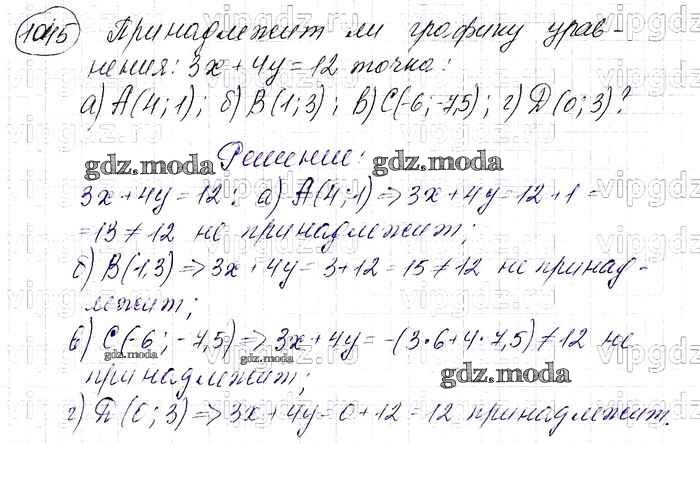 1045 Принадлежит ли графику урав-
нения: 3x + 4y = 12 точка:
а) A(4; 1); б) B(1; 3); в) C(-6; -7,5); г) D(0; 3)?
Решение:
3x + 4y = 12. а) A(4; 1) => 3x + 4y = 12 + 1 =
= 13 ≠ 12 не принадлежит;
б) B(1,3) => 3x + 4y = 3 + 12 = 15 ≠ 12 не принад-
лежит;
в) C(-6; -7,5) => 3x + 4y = -(3·6 + 4·7,5) ≠ 12 не
принадлежит;
г) D(0; 3) => 3x + 4y = 0 + 12 = 12 принадлежит.
gdz.moda
gdz.moda
gdz.moda
gdz.moda